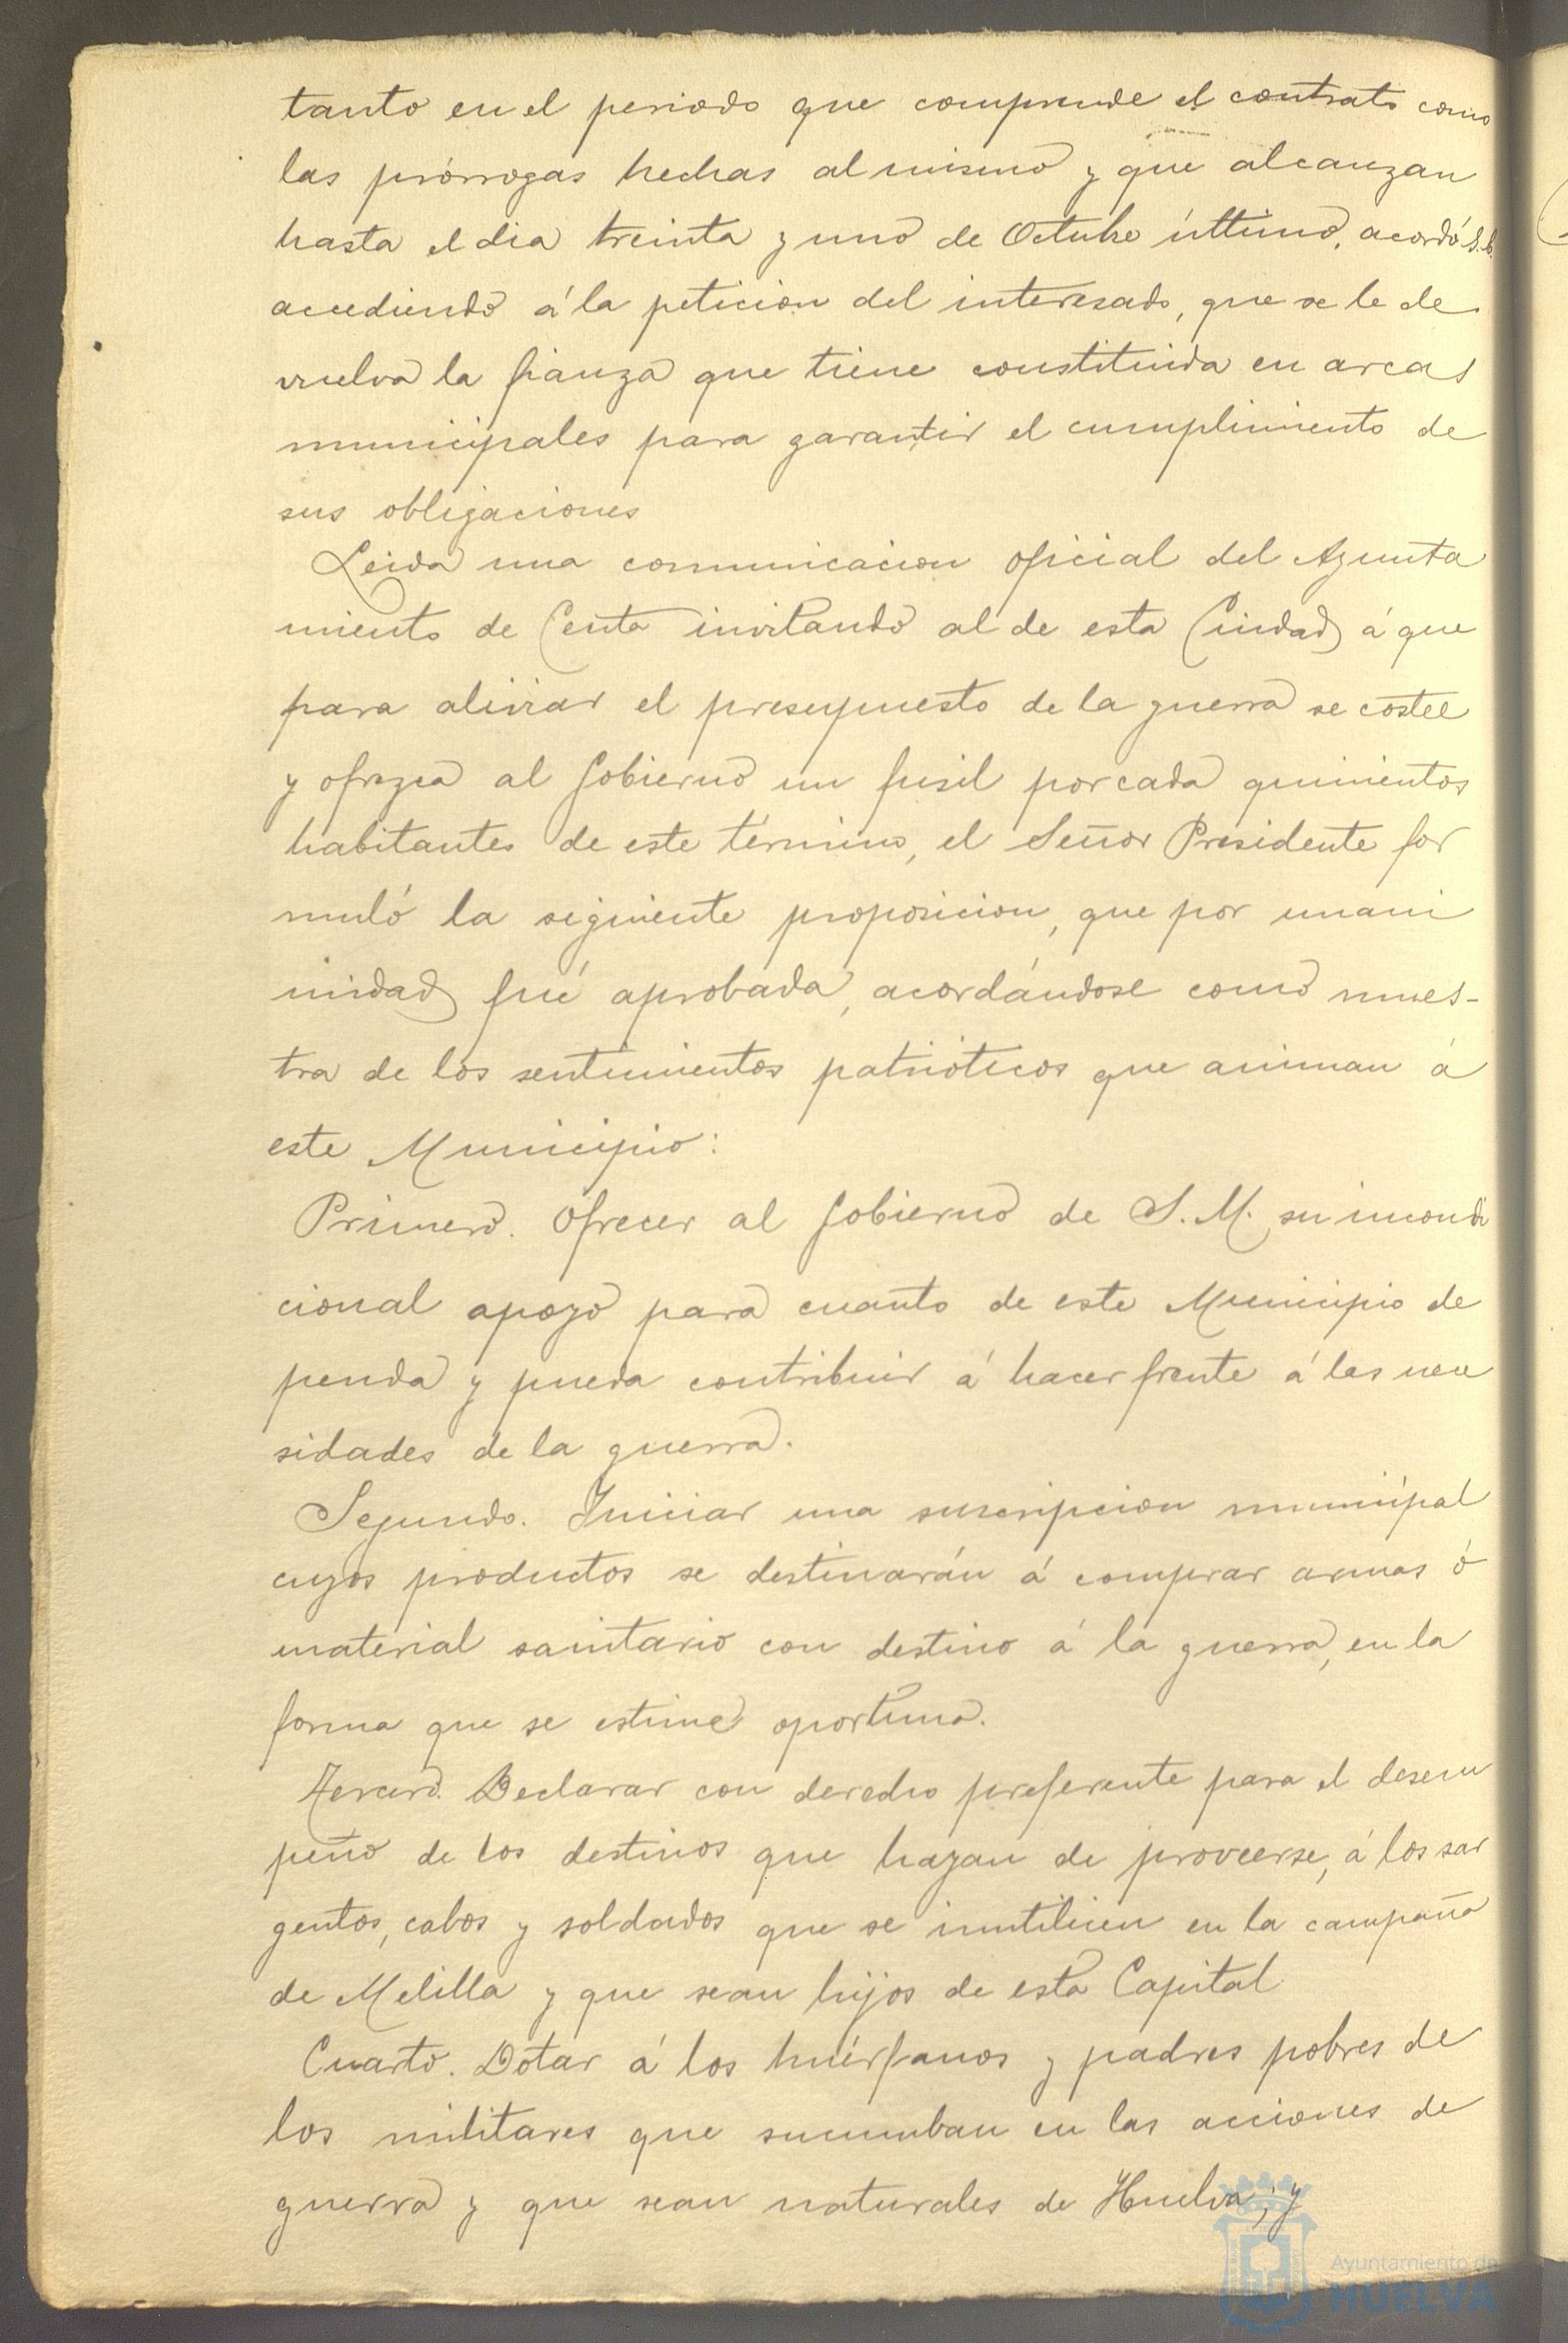 tanto en el periodo que comprende el contrato como
las prórrogas hechas al mismo y que alcanzan
hasta el dia treinta y uno de Octubre último, acordó S.E.
accediendo á la peticion del interesado, que se le de
vuelva la fianza que tiene constituida en arcas
municipales para garantir el cumplimiento de
sus obligaciones
Leida una comunicacion oficial del Ayunta
miento de Ceuta invitando al de esta Ciudad á que
para aliviar el presupuesto de la guerra se costee
y ofrezca al Gobierno un fusil por cada quinientos
habitantes de este término, el Señor Presidente for
muló la siguiente proposicion, que por unani
midad fué aprobada, acordándose como mues-
tra de los sentimientos patrióticos que animan á
este Municipio:
Primero. Ofrecer al Gobierno de S. M. su incondi
cional apoyo para cuanto de este Municipio de
penda y pueda contribuir á hacer frente á las nece
sidades de la guerra.
Segundo. Iniciar una suscripcion municipal
cuyos productos se destinarán á comprar armas ó
material sanitario con destino á la guerra, en la
forma que se estime oportuna.
Tercero. Declarar con derecho preferente para el desem
peño de los destinos que hayan de proveerse, á los sar
gentos, cabos y soldados que se inutilicen en la campaña
de Melilla y que sean hijos de esta Capital
Cuarto. Dotar á los huérfanos y padres pobres de
los militares que sucumban en las acciones de
guerra y que sean naturales de Huelva; y
Ayuntamiento de
HUELVA